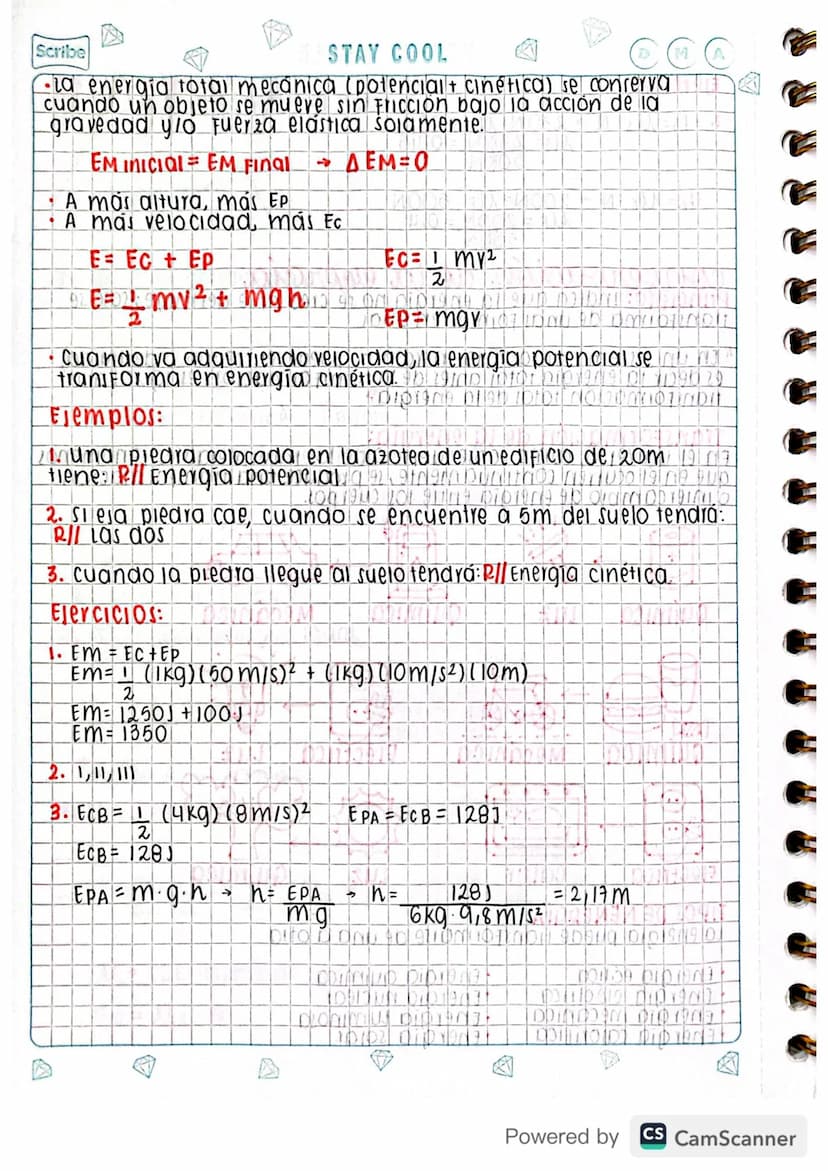 Scribe
STAY COOL
D M A
• La energía total mecánica (potencial + cinética) se conserva
cuando un objeto se mueve sin fricción bajo la acción de la
gravedad y/o fuerza elástica solamente.
EM inicial = EM Final → ΔEM=0
• A más altura, más Ep
• A más velocidad, más Ec
E= Ec + Ep
Ec= 1/2 mv²
E= 1/2 mv² + mgh
EP= mgv
• Cuando va adquiriendo velocidad, la energía potencial se
transforma en energía cinética.
Ejemplos:
1. Una piedra colocada en la azotea de un edificio de 20m
tiene: R// Energía potencial
2. Si esa piedra cae, cuando se encuentre a 5m. del suelo tendrá:
R// Las dos
3. Cuando la piedra llegue al suelo tendrá: R// Energía cinética.
Ejercicios:
1. Em = Ec + Ep
Em= 1/2 (1kg)(50 m/s)² + (1kg)(10m/s²)(10m)
Em= 1250J + 100J
Em= 1350
2. I, II, III
3. EcB = 1/2 (4kg)(8m/s)² EPA = EcB = 128J
EcB= 128J
EPA = m·g·h → h= EPA/mg → h= 128J/6kg·9,8m/s² = 2,17m
Powered by CS CamScanner